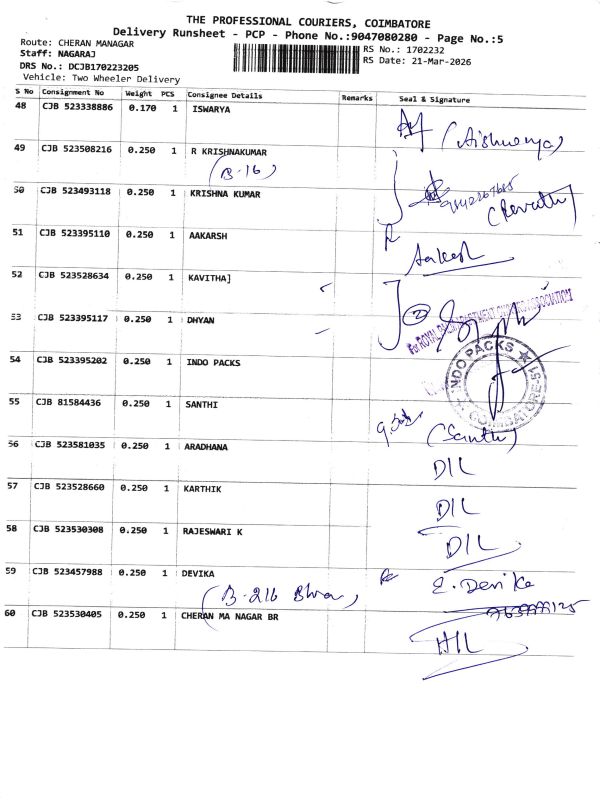 THE PROFESSIONAL COURIERS, COIMBATORE
Delivery Runsheet - PCP - Phone No.:9047080280 - Page No.:5
Route: CHERAN MANAGAR
Staff: NAGARAJ
DRS No.: DCJB170223205
Vehicle: Two Wheeler Delivery
RS No.: 1702232
RS Date: 21-Mar-2026
S No Consignment No Weight PCS Consignee Details Remarks Seal & Signature
48 CJB 523338886 0.170 1 ISWARYA
(Aishwarya)
49 CJB 523508216 0.250 1 R KRISHNAKUMAR
(B-16)
50 CJB 523493118 0.250 1 KRISHNA KUMAR
(Revathi)
51 CJB 523395110 0.250 1 AAKARSH
Aakesh
52 CJB 523528634 0.250 1 KAVITHA]
2
53 CJB 523395117 0.250 1 DHYAN
For ROYAL PALM APARTMENT OWNERS ASSOCIATION
54 CJB 523395202 0.250 1 INDO PACKS
INDO PACKS ★ COIMBATORE-51
55 CJB 81584436 0.250 1 SANTHI
(Santhi)
56 CJB 523581035 0.250 1 ARADHANA
DIL
57 CJB 523528660 0.250 1 KARTHIK
DIL
58 CJB 523530308 0.250 1 RAJESWARI K
DIL
59 CJB 523457988 0.250 1 DEVIKA
E. Devika
(B-216
60 CJB 523530405 0.250 1 CHERAN MA NAGAR BR
HIL